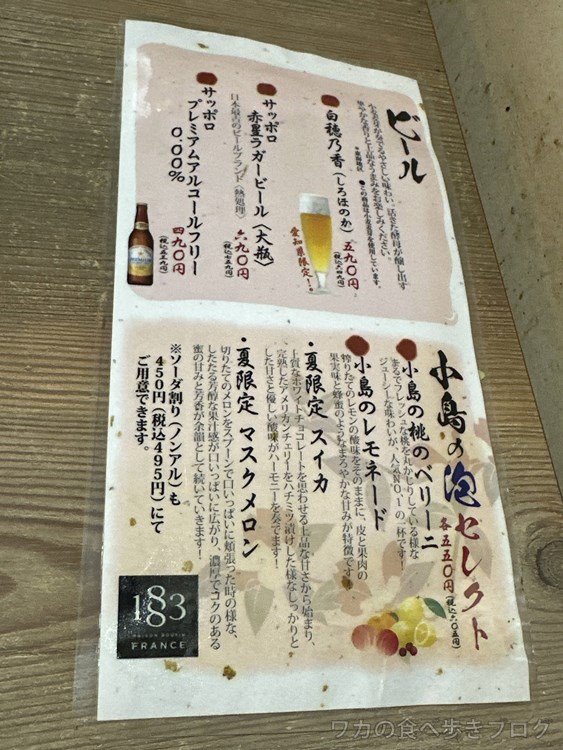 ビール
小麦麦芽が奏でるやさしい味わい。活きた酵母が醸し出す
華やかな香りと上品なうまみをお楽しみください。
●この商品は小麦麦芽を使用しています。
白穂乃香(しろほのか) 五九〇円(税込六四九円)
愛知県限定!
サッポロ
赤星ラガービール(大瓶) 六九〇円(税込七五九円)
日本最古のビールブランド(熱処理)
サッポロ
プレミアムアルコールフリー
0.00% 四九〇円(税込五三九円)
小島の泡セレクト
各五五〇円(税込六〇五円)
小島の桃のベリーニ
まるでフレッシュな桃を丸かじりしている様な
ジューシーな味わいが、人気NO.1の一杯です!
小島のレモネード
搾りたてのレモンの酸味をそのままに、皮と果肉の
果実味と蜂蜜のようなまろやかな甘みが特徴です
・夏限定 スイカ
上質なホワイトチョコレートを思わせる上品な甘さから始まり、
完熟したアメリカンチェリーをハチミツ漬けした様なしっかりと
した甘さと優しい酸味がハーモニーを奏でます!
・夏限定 マスクメロン
切りたてのメロンをスプーンで口いっぱいに頬張った時の様な、
したたる芳醇な果汁感が口いっぱいに広がり、濃厚でコクのある
蜜の甘みと芳香が余韻として続いていきます!
※ソーダ割り(ノンアル)も
450円(税込495円)にて
ご用意できます。
1883
MAISON ROUTIN
FRANCE
ワカの食べ歩きブログ